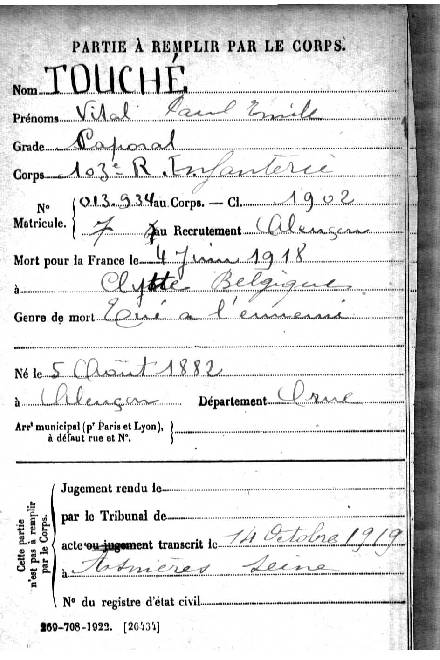 PARTIE À REMPLIR PAR LE CORPS.
Nom TOUCHÉ
Prénoms Vital Paul Emile
Grade Caporal
Corps 103e R. Infanterie
N° Matricule. 013.934 au Corps. — Cl. 1902
7 au Recrutement Alençon
Mort pour la France le 4 Juin 1918
à Clytte Belgique
Genre de mort Tué a l'ennemi
Né le 5 Août 1882
à Alençon Département Orne
Arrt municipal (pr Paris et Lyon), à défaut rue et N°.
Cette partie n'est pas à remplir par le Corps.
Jugement rendu le
par le Tribunal de
acte ou jugement transcrit le 14 Octobre 1919
à Asnières Seine
N° du registre d'état civil
269-708-1922. [26434]